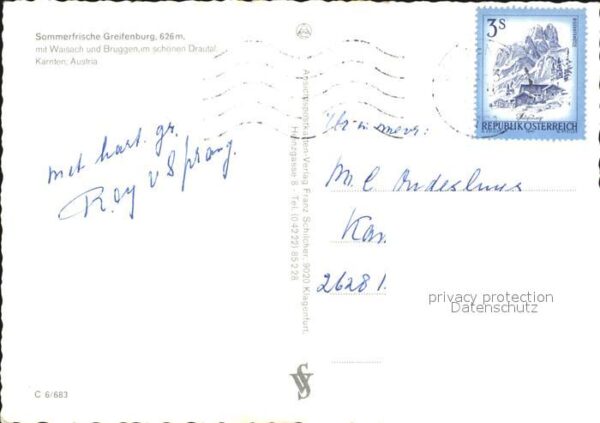 Sommerfrische Greifenburg, 626 m,
mit Waisach und Bruggen, im schönen Drautal,
Kärnten, Austria
met hart. gr.
Roy v Sprang.
Ansichtspostkarten-Verlag Franz Schilcher, 9020 Klagenfurt,
Heinzgasse 8 - Tel. (0 42 22) 85 2 28
3 S
REPUBLIK ÖSTERREICH
Mr. C
Kon.
26281.
privacy protection
Datenschutz
C 6/683